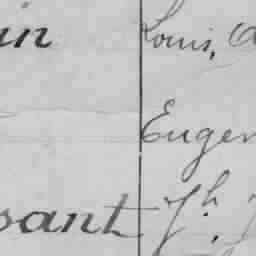 in Louis, a
Eugen
sant Jh. J